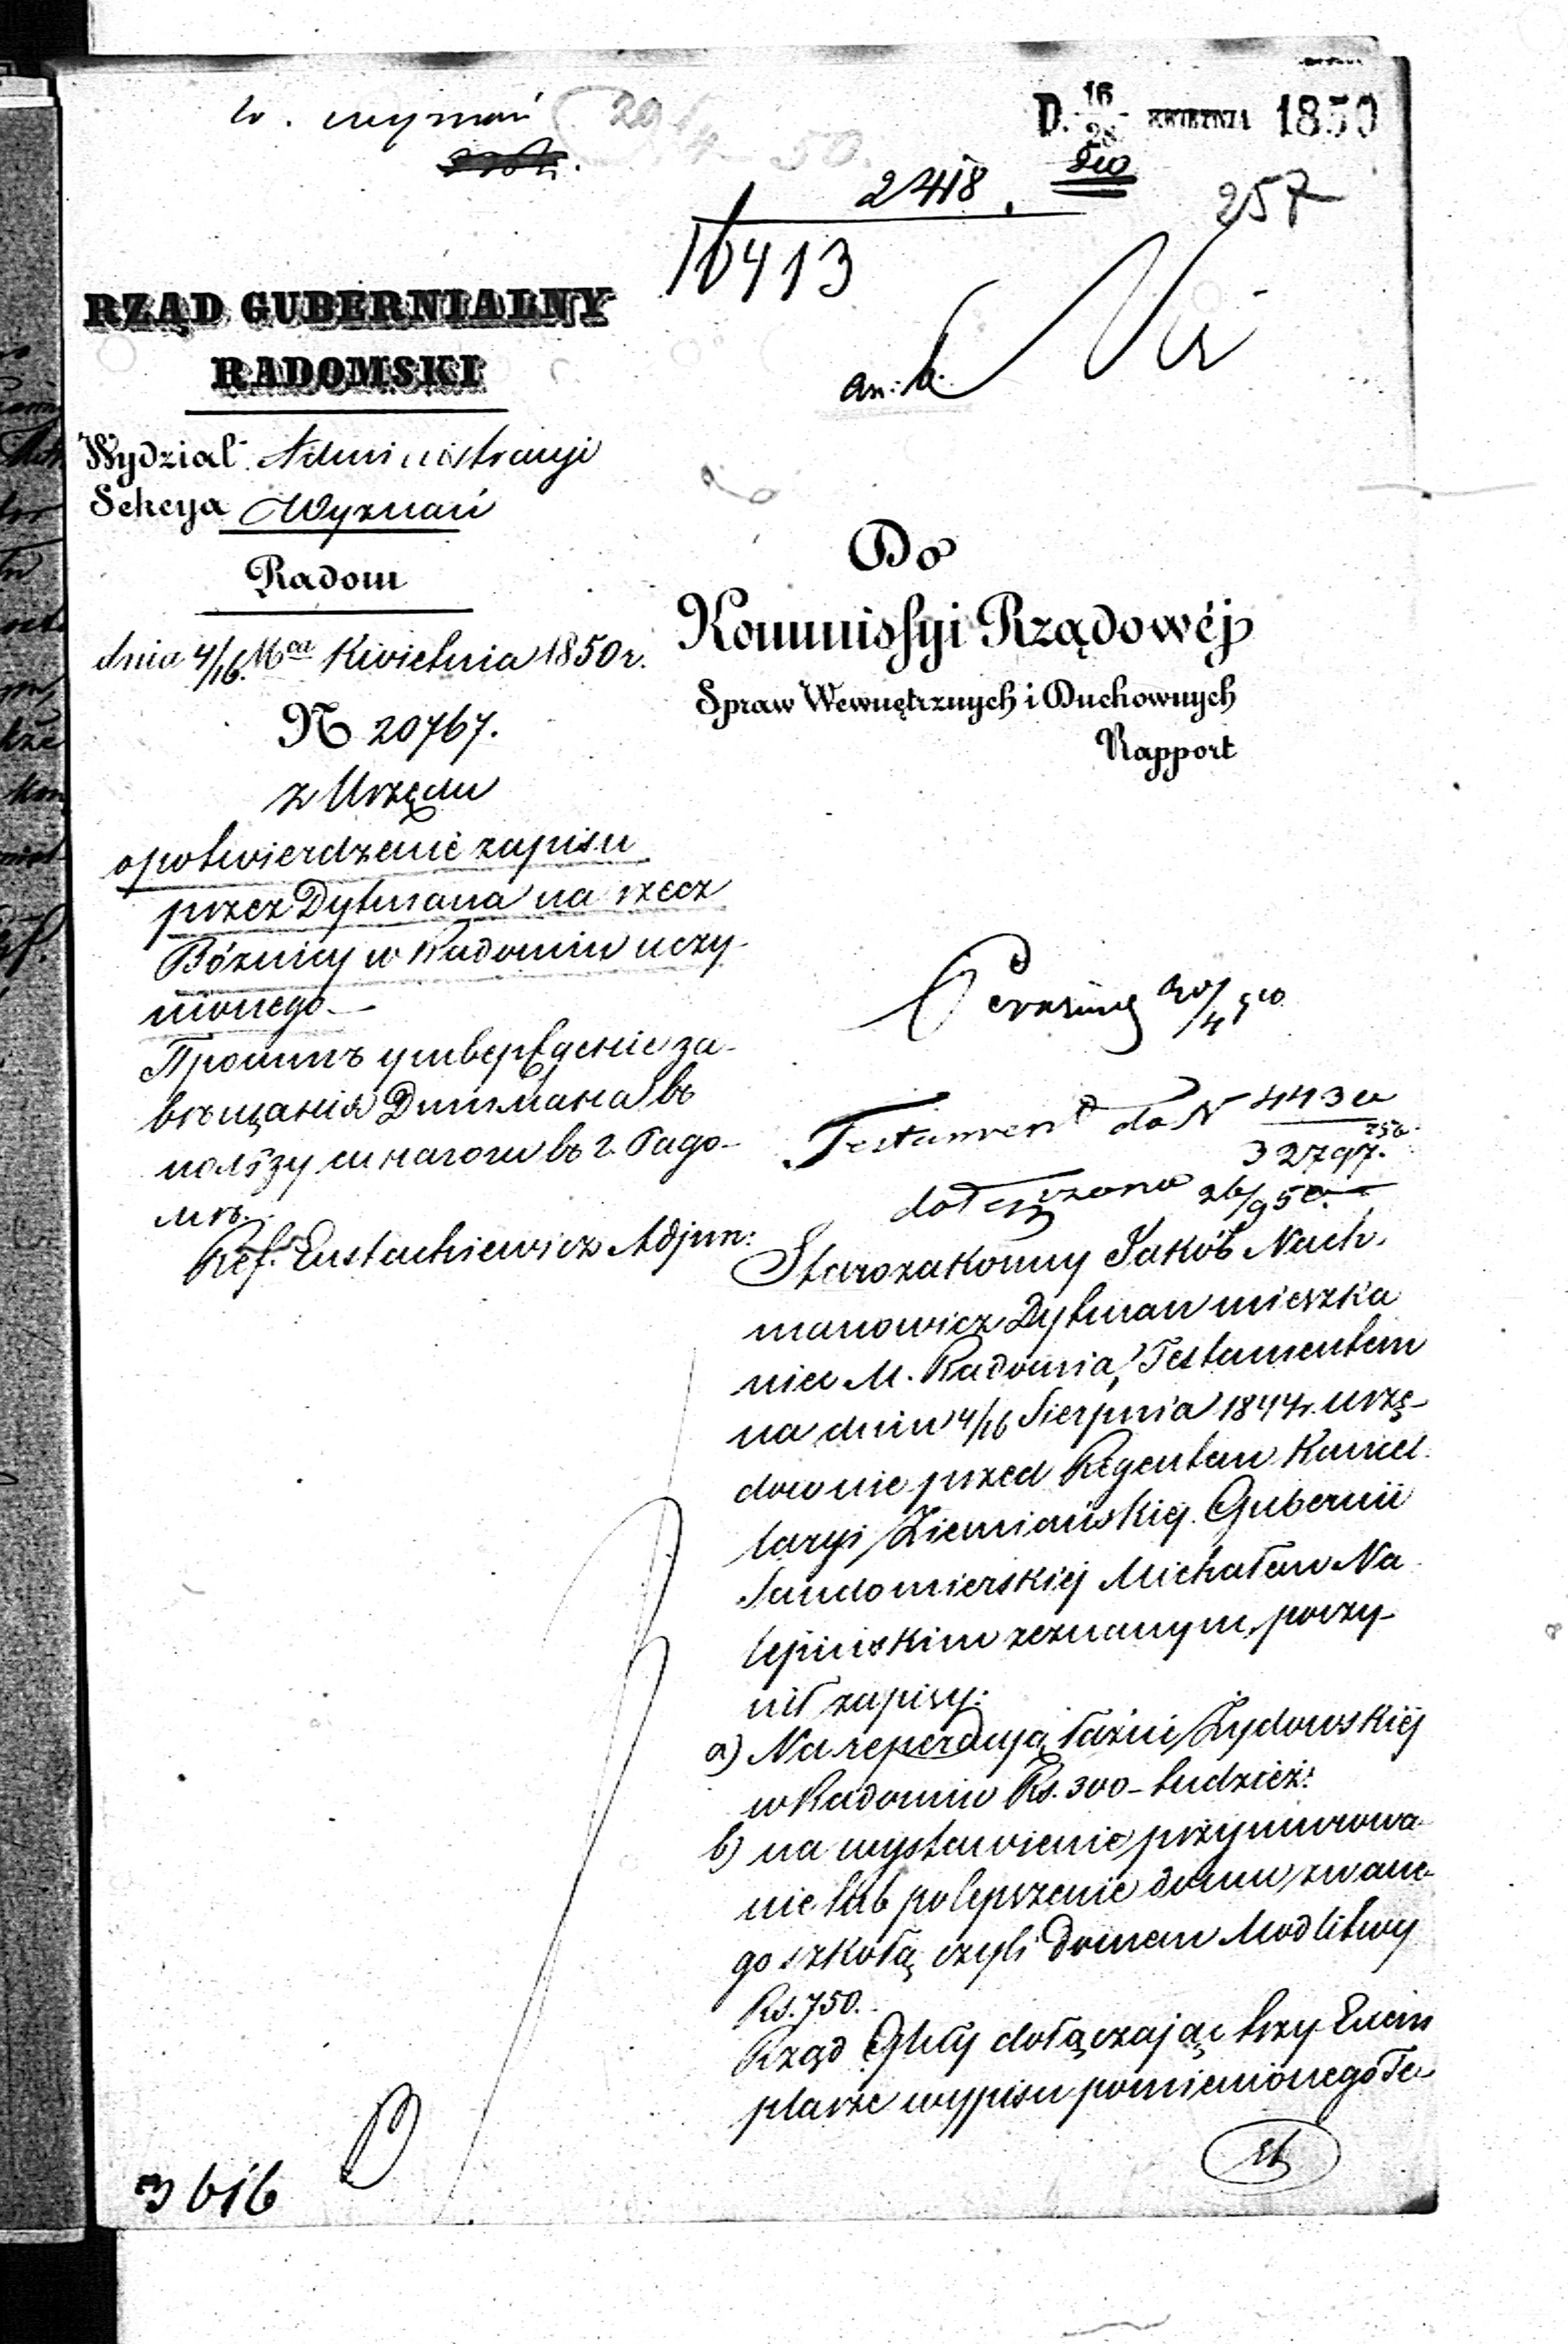 w. wyznań
29/4 50.
D. 16/28 KWIETNIA 1850
2418.
257
16413
RZĄD GUBERNIALNY
RADOMSKI
Wydział Administracyi
Sekcya Wyznań
Radom
dnia 4/16 Mca Kwietnia 1850 r.
N 20767.
z Urzędu
o potwierdzenie zapisu
przez Dytmana na rzecz
Bóżnicy w Radomiu uczy-
nionego.
Проситъ утвержденiе за-
вѣщанiя Дитмана въ
пользу синагоги въ г. Радо-
мѣ.
Ref. Eustachiewicz Adjun:
Do
Kommissyi Rządowéj
Spraw Wewnętrznych i Duchownych
Rapport
Testament do N 4430
32797.
dołączono 26/9 50.
Starozakonny Jakób Nach-
manowicz Dytman mieszka
niec M. Radomia, Testamentem
na dniu 4/16 Sierpnia 1844 r. urzę-
downie przed Regentem Kancel-
laryi Ziemiańskiej Gubernii
Sandomierskiej Michałem Na
lepińskim zeznanym, poczy-
nił zapisy:
a) Na reperacyją łaźni Żydowskiéj
w Radomiu Rs. 300 – tudzież:
b) na wystawienie przymurowa-
nie lub polepszenie domu zwane-
go szkołą czyli Domem Modlitwy
Rs. 750.
Rząd Gblny dołączając trzy Exem
plarze wypisu pomienionego Te-
3616